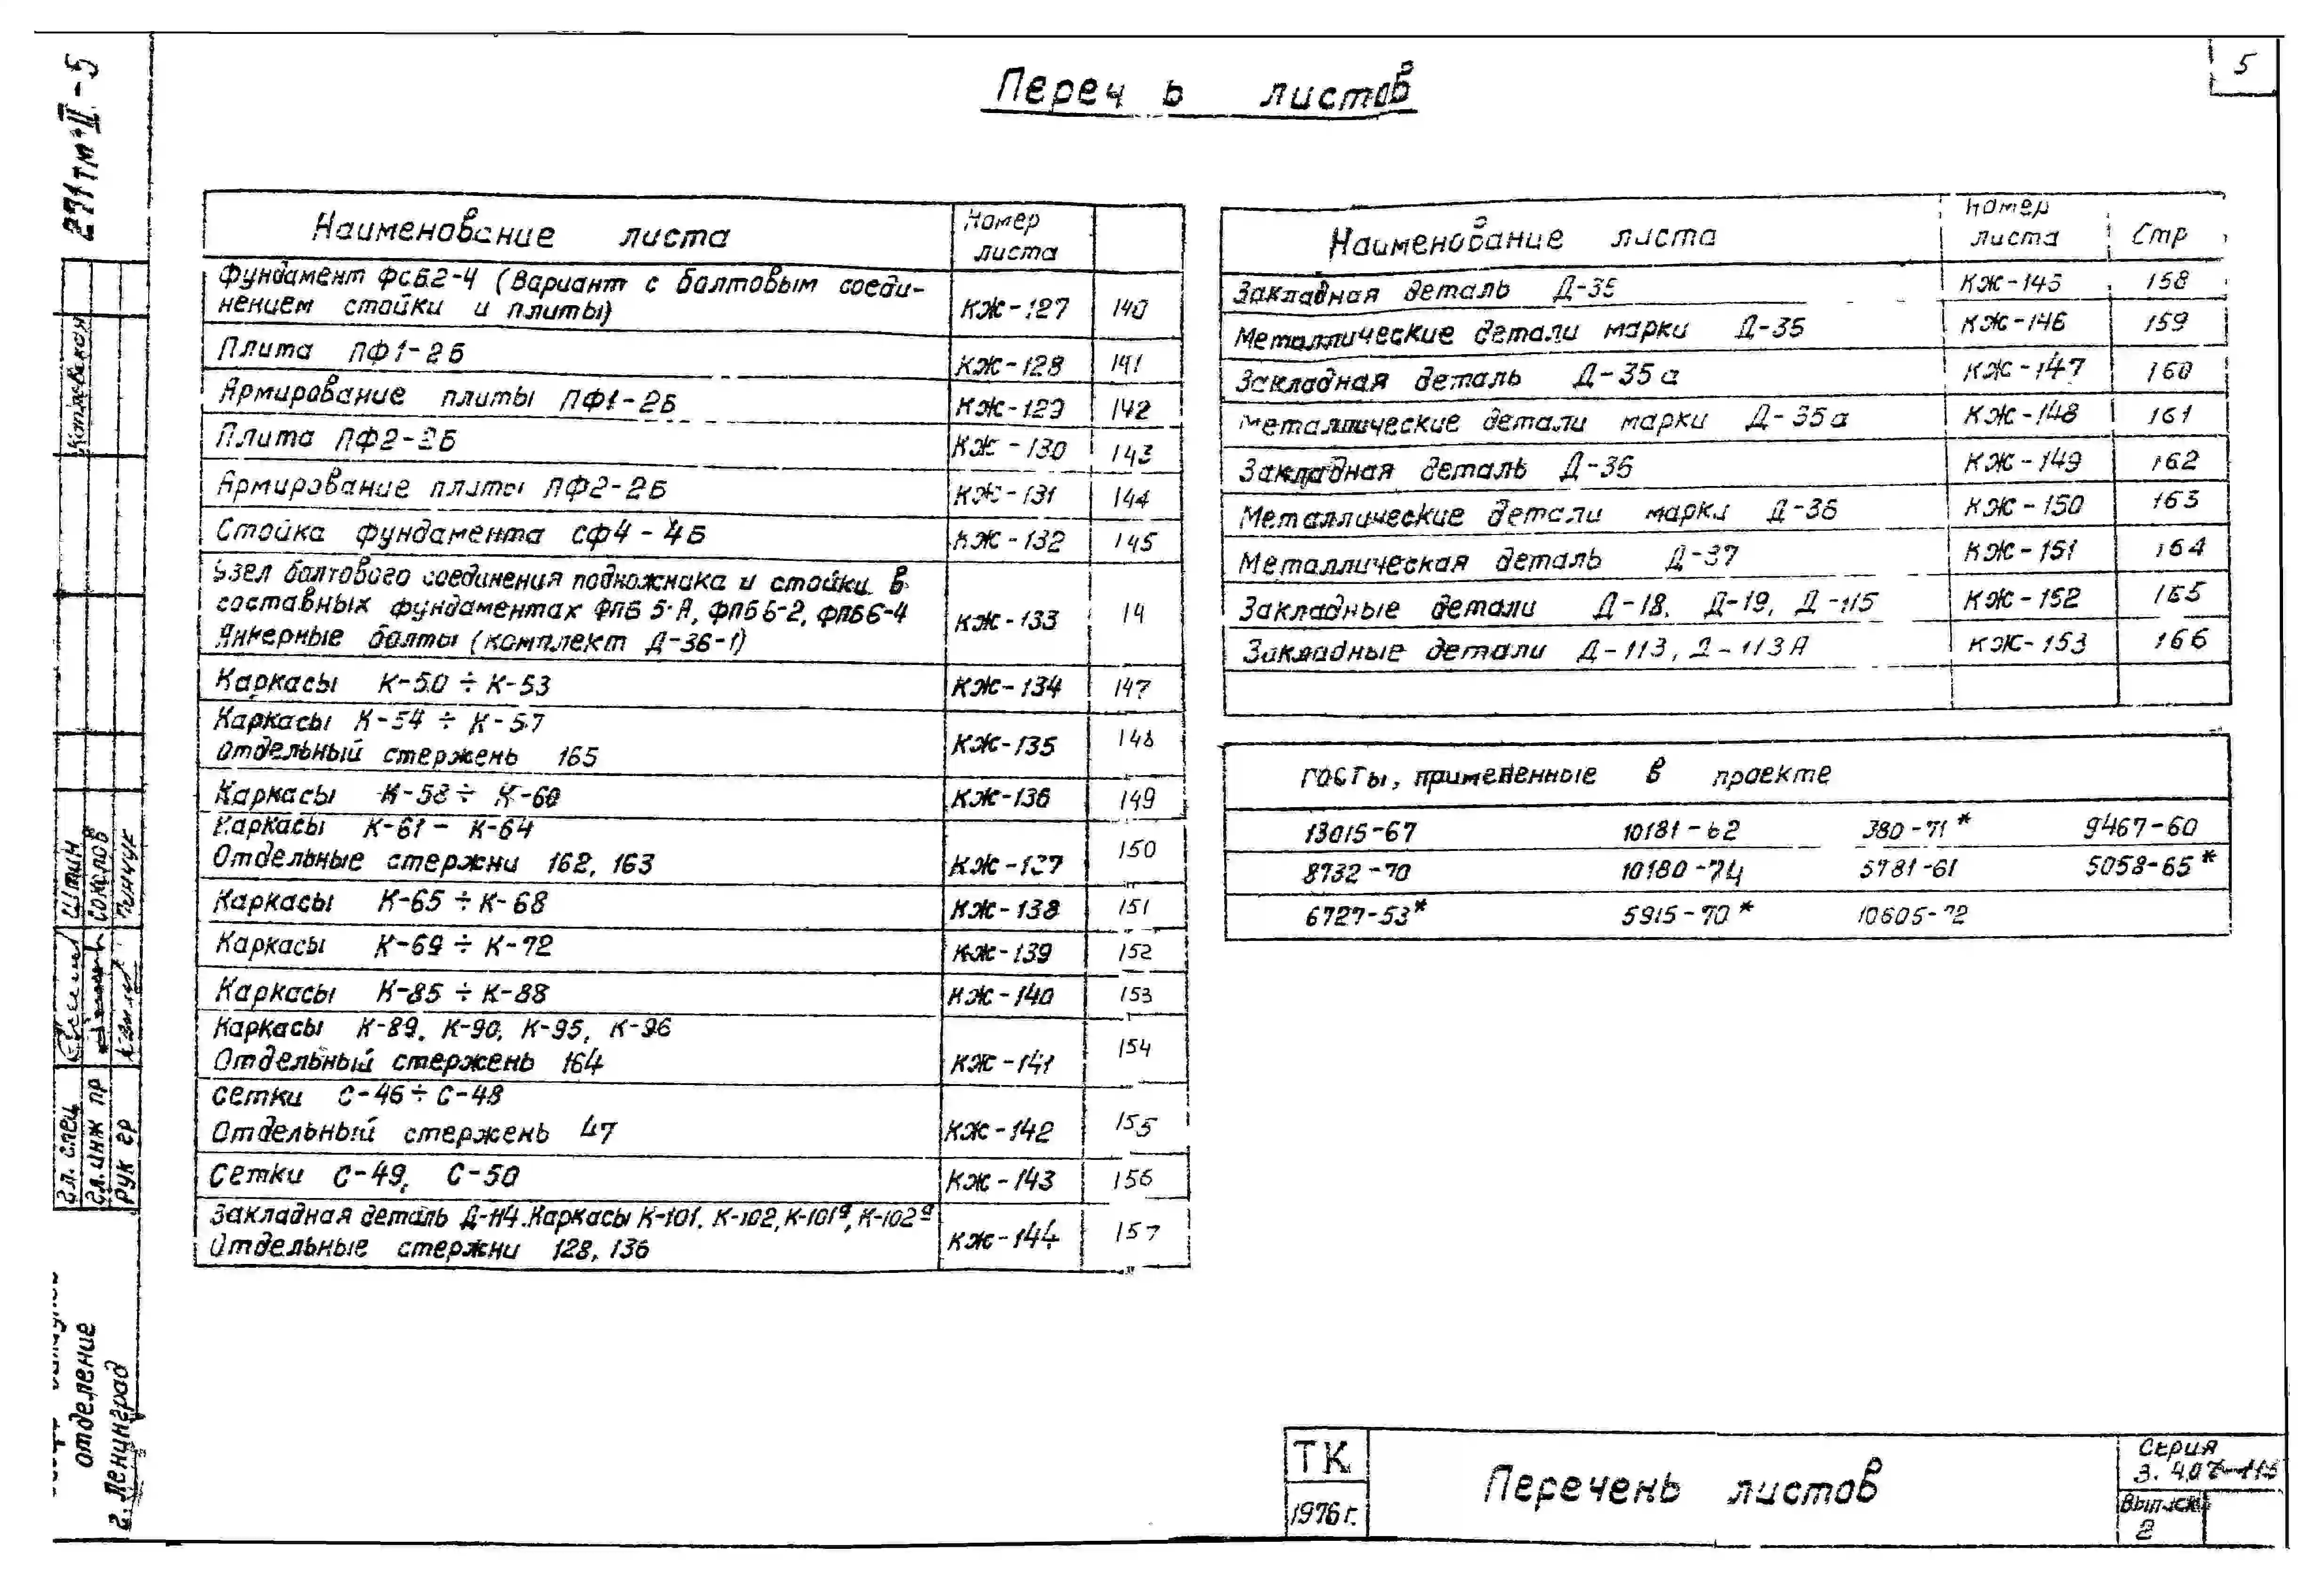 5
Переч ь листов
271тм-II-5
Наименование листа
Номер
листа
фундамент ФСБ2-4 (Вариант с болтовым соеди-
нением стойки и плиты) КЖ-127 140
Плита ПФ1-2Б КЖ-128 141
Армирование плиты ПФ1-2Б КЖ-129 142
Плита ПФ2-2Б КЖ-130 143
Армирование плиты ПФ2-2Б КЖ-131 144
Стойка фундамента СФ4-4Б КЖ-132 145
Узел болтового соединения подножника и стойки в
составных фундаментах ФПБ5-А, ФПБ6-2, ФПБ6-4 КЖ-133 14
Анкерные болты (комплект Д-36-1)
Каркасы К-50 ÷ К-53 КЖ-134 147
Каркасы К-54 ÷ К-57
Отдельный стержень 165 КЖ-135 148
Каркасы К-58 ÷ К-60 КЖ-136 149
Каркасы К-61 - К-64
Отдельные стержни 162, 163 КЖ-137 150
Каркасы К-65 ÷ К-68 КЖ-138 151
Каркасы К-69 ÷ К-72 КЖ-139 152
Каркасы К-85 ÷ К-88 КЖ-140 153
Каркасы К-89, К-90, К-95, К-96
Отдельный стержень 164 КЖ-141 154
Сетки С-46 ÷ С-48
Отдельный стержень 47 КЖ-142 155
Сетки С-49, С-50 КЖ-143 156
Закладная деталь Д-114. Каркасы К-101, К-102, К-101а, К-102а
Отдельные стержни 128, 136 КЖ-144 157
Наименование листа
Номер
листа
Стр
Закладная деталь Д-35 КЖ-145 158
Металлические детали марки Д-35 КЖ-146 159
Закладная деталь Д-35а КЖ-147 160
Металлические детали марки Д-35а КЖ-148 161
Закладная деталь Д-36 КЖ-149 162
Металлические детали марки Д-36 КЖ-150 163
Металлическая деталь Д-37 КЖ-151 164
Закладные детали Д-18, Д-19, Д-115 КЖ-152 165
Закладные детали Д-113, Д-113А КЖ-153 166
ГОСТы, применённые в проекте
13015-67 10181-62 380-71* 9467-60
8732-70 10180-74 5781-61 5058-65*
6727-53* 5915-70* 10605-72
Гл. спец Цтин
Гл. инж пр Соколов
Рук гр Пинчук
отделение
г. Ленинград
ТК
1976г.
Перечень листов
Серия
3.407-115
Выпуск
2